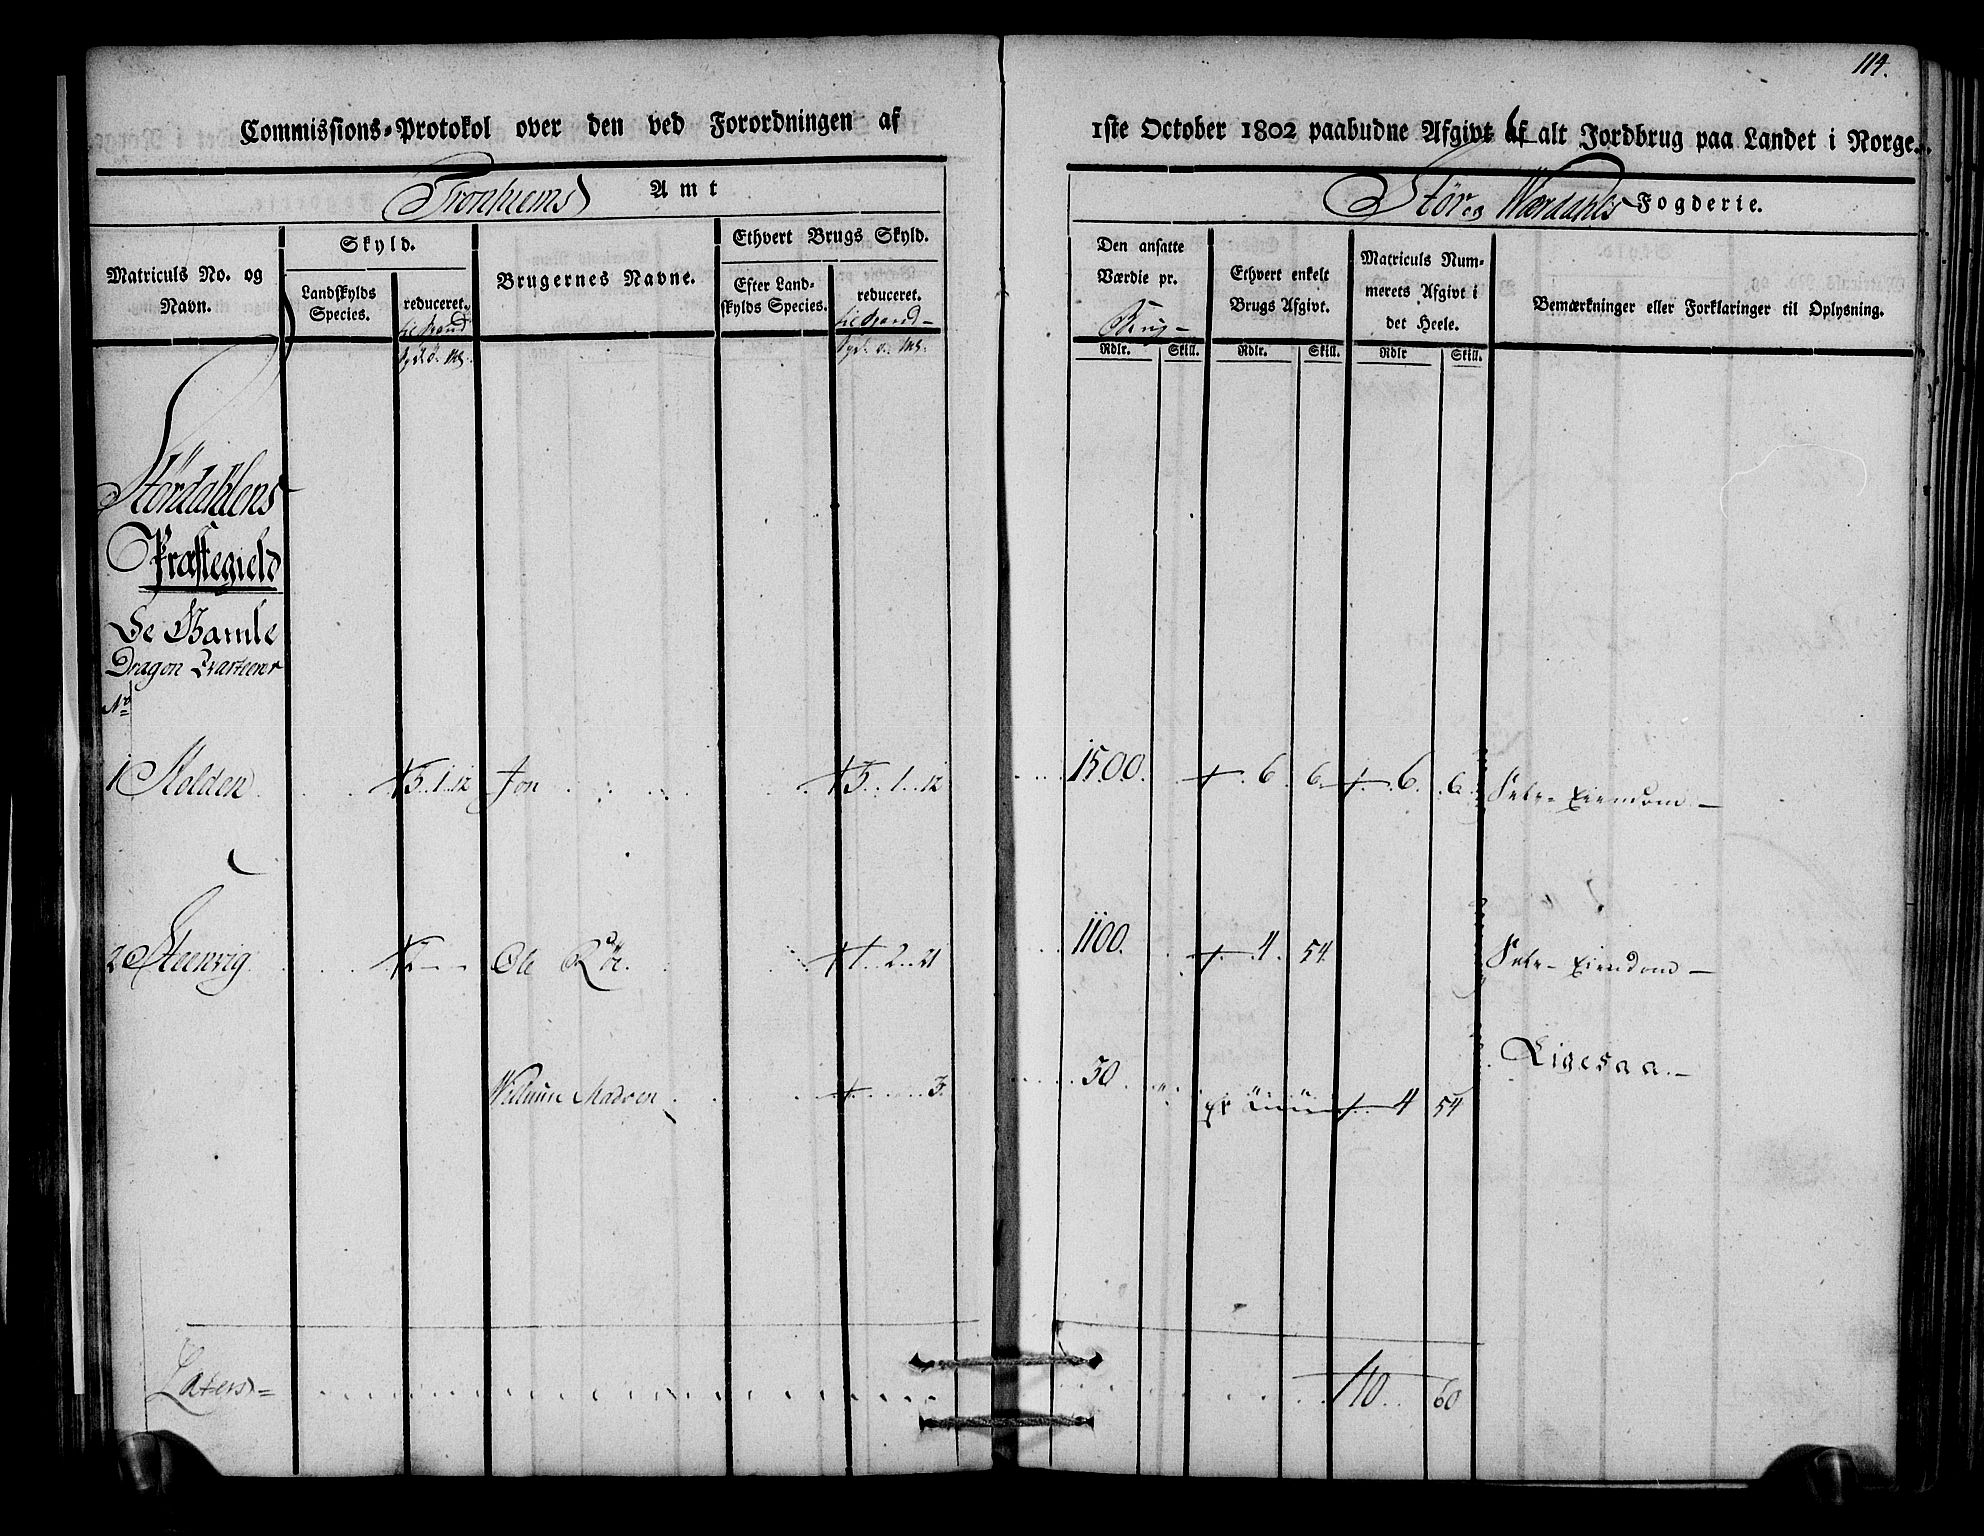 114.
Commissions-Protokol over den ved Forordningen af 1ste October 1802 paabudne Afgivt af alt Jordbrug paa Landet i Norge.
Tronhiems Amt
Stör og Wærdahls Fogderie.
Matriculs No. og Navn.
Skyld.
Landskylds Species.
reduceret.
Brugernes Navne.
Ethvert Brugs Skyld.
Efter Landskylds Species.
reduceret.
Den ansatte Værdie pr.
Brug
Ethvert enkelt Brugs Afgivt.
Matriculs Nummerets Afgivt i det Heele.
Bemærkninger eller Forklaringer til Oplysning.
Rdlr. Skill. Rdlr. Skill. Rdlr Skill.
Stördahlens
Præstegield
De Gamle
Dragon Qvarteerer
No
1 Holden 5..1..12 Jon 5..1..12 1500. 6. 6. 6. 6. Selv-Eiendom
2 Steenvig 2 Ole Röe 1..2..21 1100. 4. 54. Selv-Eiendom
Madsen 3. 50 4 54 Ligesaa
Laters 10 60